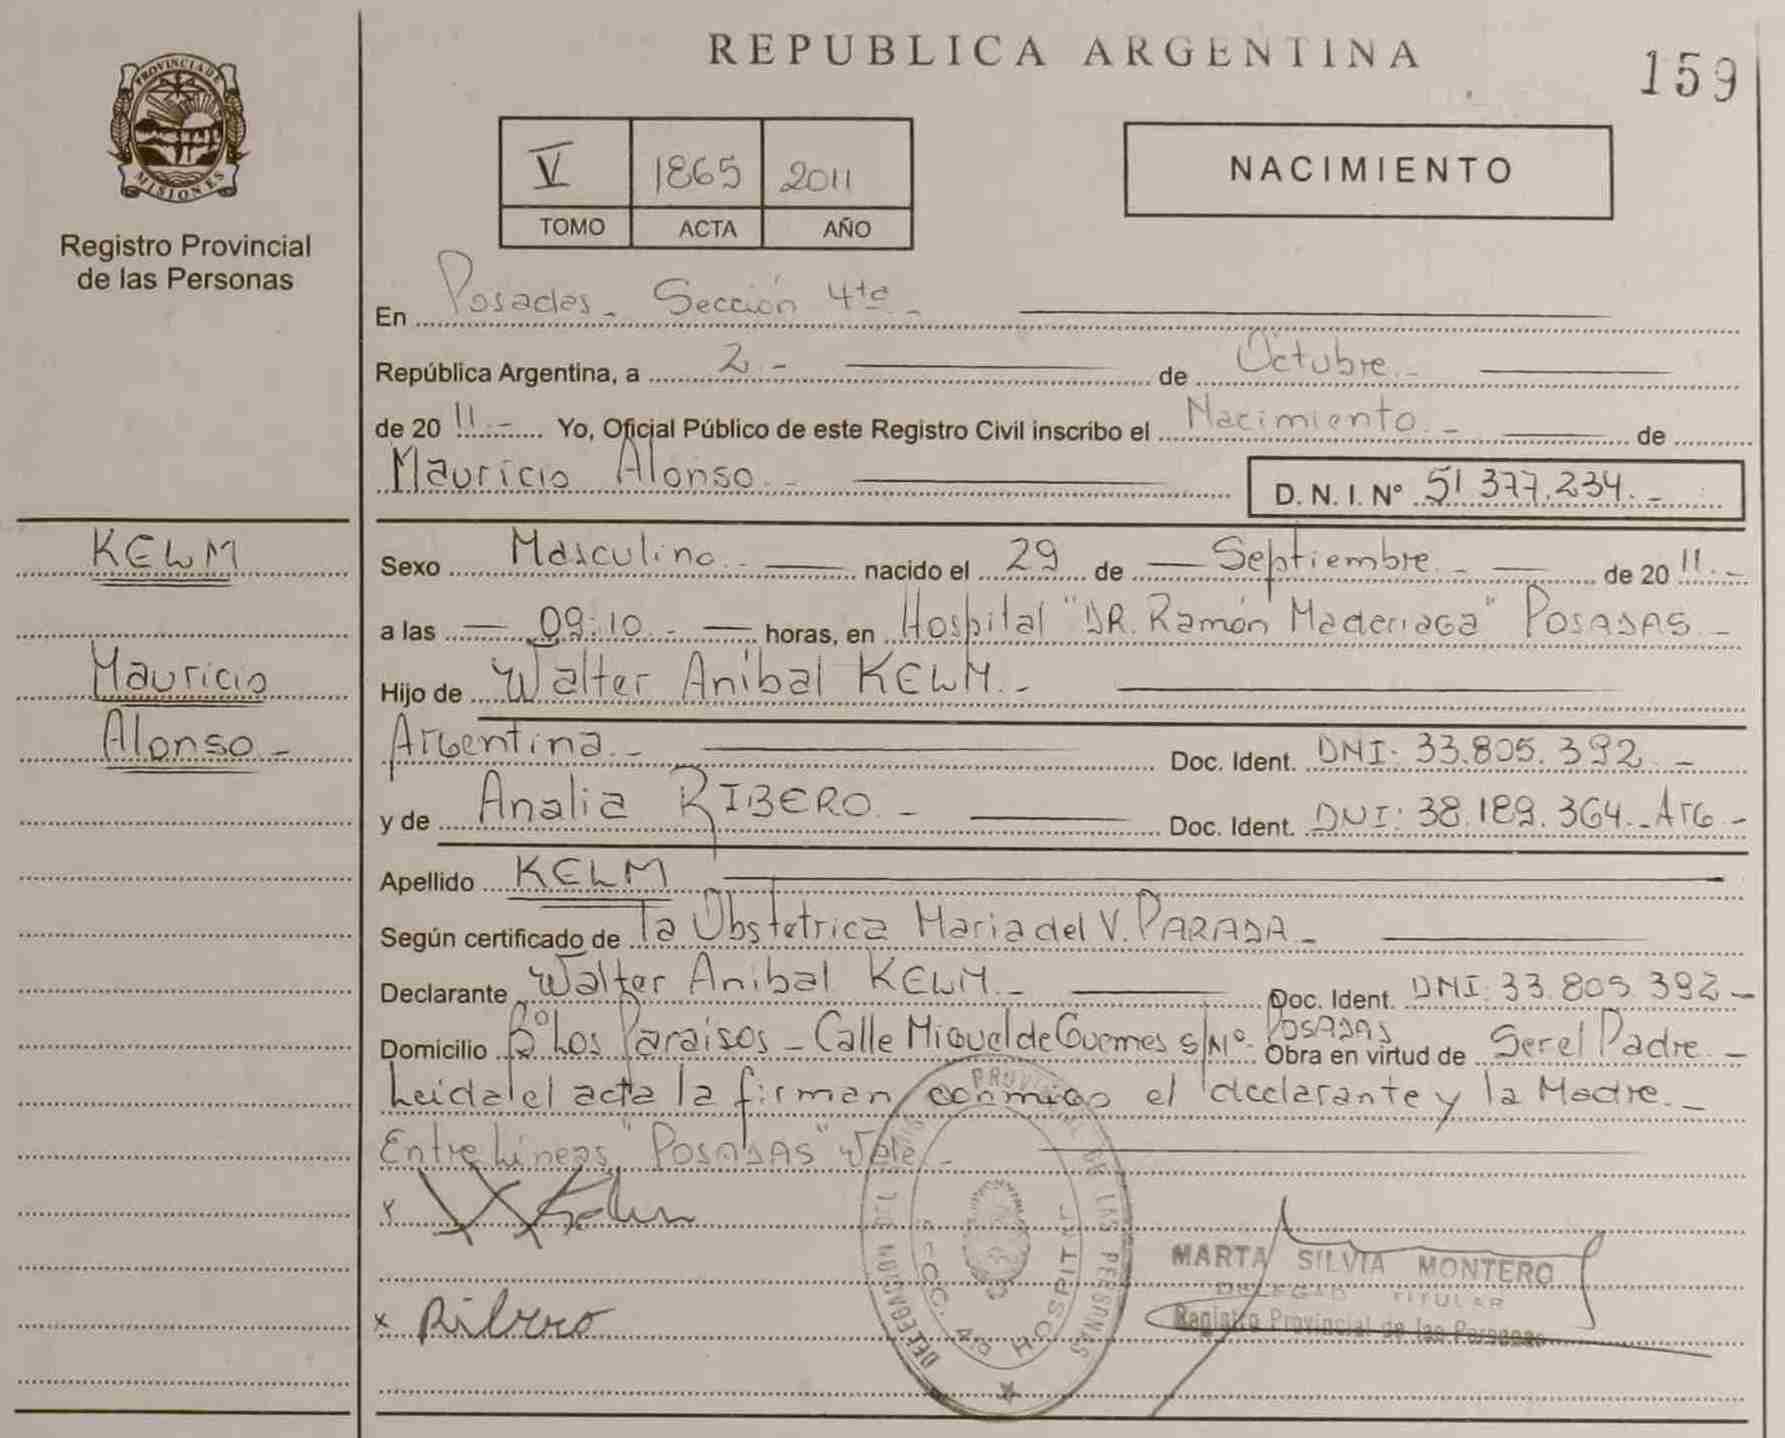 REPUBLICA ARGENTINA
159
PROVINCIA DE
MISIONES
Registro Provincial
de las Personas
V 1865 2011
TOMO ACTA AÑO
NACIMIENTO
En Posadas - Sección 4ta -
República Argentina, a 2 - de Octubre -
de 20 11 - Yo, Oficial Público de este Registro Civil inscribo el Nacimiento - de
Mauricio Alonso - D. N. I. Nº 51.377.234 -
KELM
Mauricio
Alonso -
Sexo Masculino - nacido el 29 de Septiembre - de 20 11 -
a las 09:10 - horas, en Hospital "DR. Ramón Maderiaga" POSADAS -
Hijo de Walter Anibal KELM -
Argentina - Doc. Ident. DNI: 33.805.392 -
y de Analia RIBERO - Doc. Ident. DNI: 38.189.364 - Arg -
Apellido KELM
Según certificado de la Obstetrica Maria del V. PARADA -
Declarante Walter Anibal KELM - Doc. Ident. DNI: 33.805.392 -
Domicilio Bº Los Paraisos - Calle Miguel de Guemes s/Nº POSADAS Obra en virtud de Ser el Padre -
Leida el acta la firman conmigo el declarante y la Madre -
Entre Lineas "POSADAS" Vale -
x
x Ribero
DELEGACION DEL PROVINCIAL DE LAS PERSONAS
SECC. 4ta HOSPITAL
MARTA SILVIA MONTERO
TITULAR
Registro Provincial de las Personas